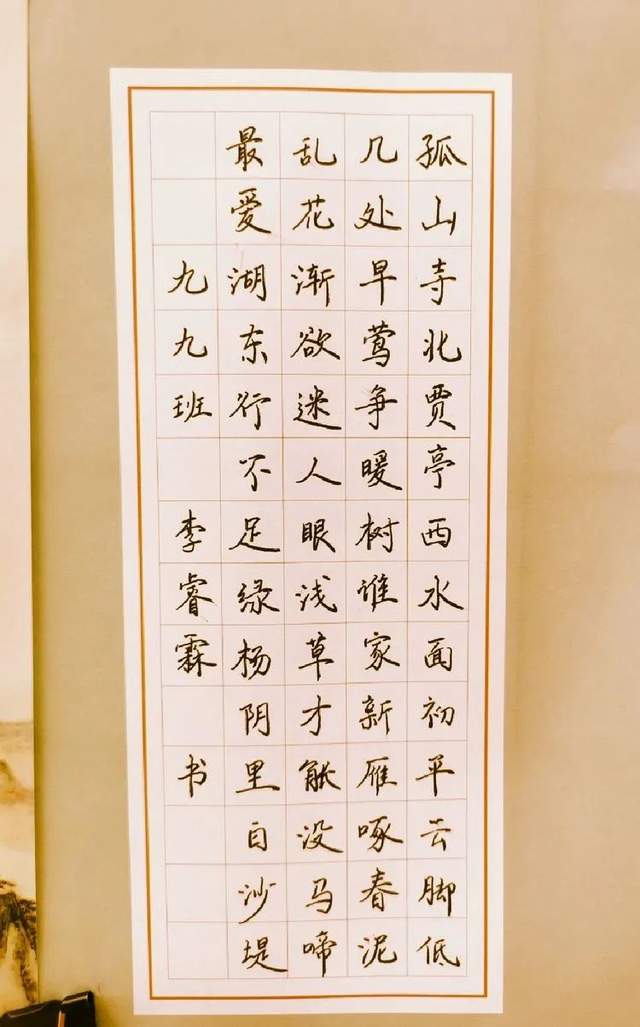 孤山寺北贾亭西水面初平云脚低
几处早莺争暖树谁家新雁啄春泥
乱花渐欲迷人眼浅草才能没马啼
最爱湖东行不足绿杨阴里白沙堤
九九班 李睿霖 书